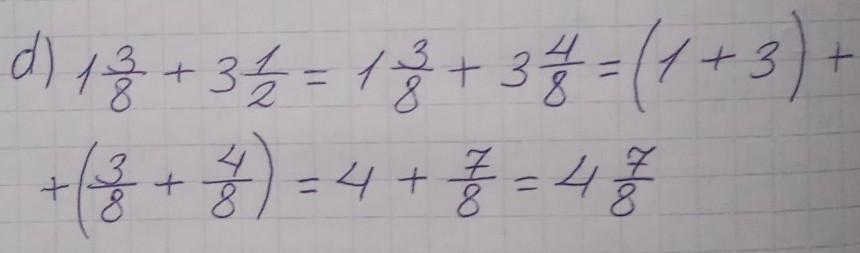 d) 1 3/8 + 3 1/2 = 1 3/8 + 3 4/8 = (1 + 3) +
+ (3/8 + 4/8) = 4 + 7/8 = 4 7/8